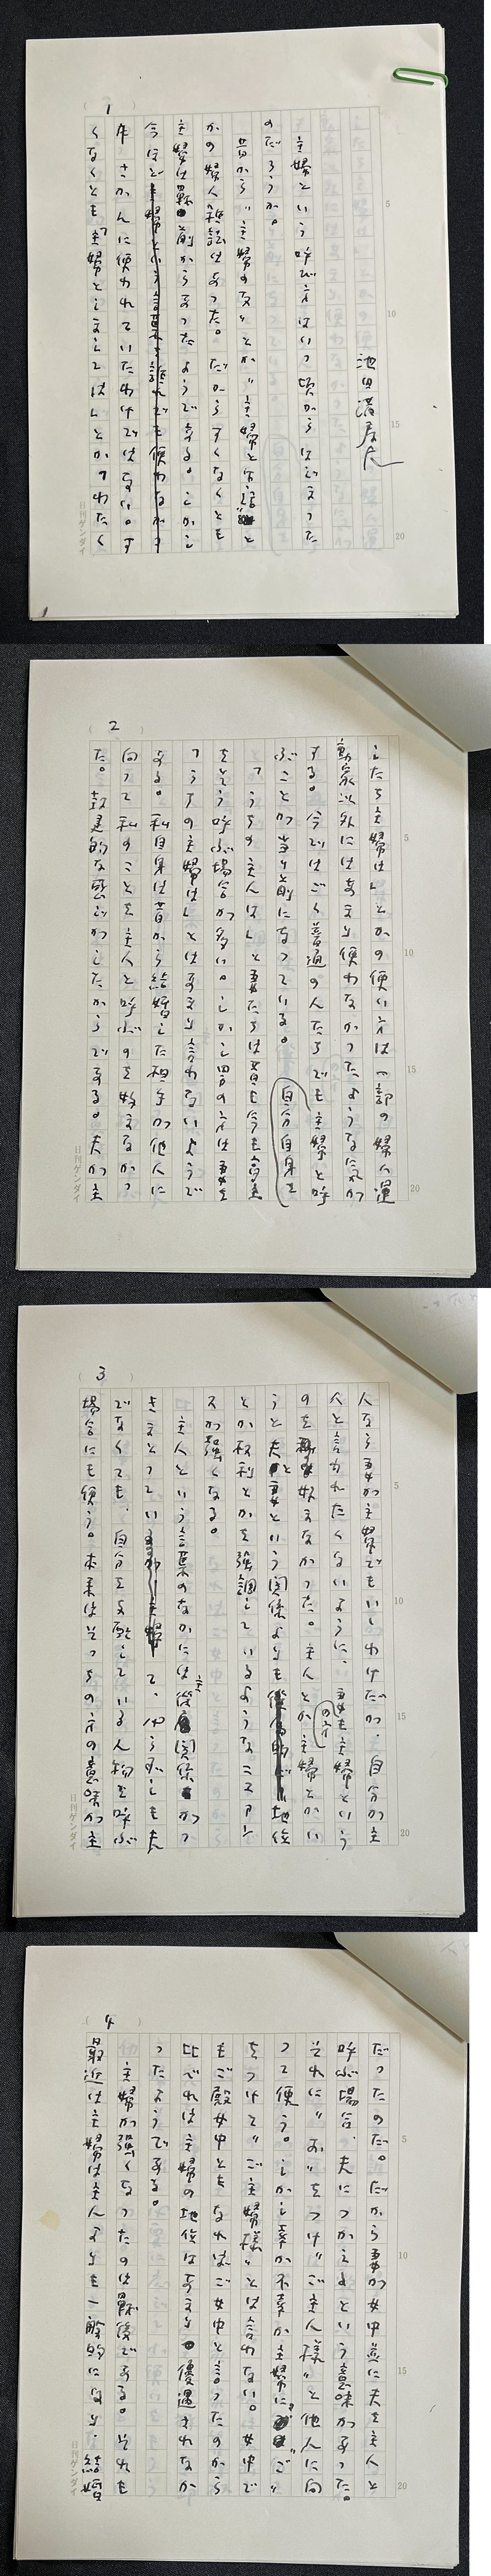 1
池田満寿夫
主婦という呼び方はいつ頃からはじまった
のだろうか。
昔から〝主婦の友〟とか〝主婦と生活〟と
かの婦人雑誌はあった。だからすくなくとも
主婦は戦前からあったようである。しかし
今ほど
年さかんに使われていたわけではない。す
くなくとも「主婦としましては」とか「わたく
日刊ゲンダイ
2
したち主婦は」とかの使い方は一部の婦人運
動家以外にはあまり使わなかったような気が
する。今ではごく普通の人たちでも自分自身を主婦と呼
ぶことが当り前になっている。
「うちの主人は」と妻たちは昔も今も亭主
をそう呼ぶ場合が多い。しかし男の方は妻を
「うちの主婦は」とはあまり言わないようで
ある。私自身は昔から結婚した相手が他人に
向って私のことを主人と呼ぶのを好まなかっ
た。封建的な感じがしたからである。夫が主
日刊ゲンダイ
3
人なら妻が主婦でもいいわけだが、自分が主
人と言われたくないように、妻の方も主婦という
のを好まなかった。主人とか主婦とかい
うと夫と妻という関係よりも地位
とか権利とかを強調しているようなニュアン
スが強くなる。
主人という言葉のなかには主従関係がつ
きまとっていて、かならずしも夫
でなくても、自分を支配している人物を呼ぶ
場合にも使う。本来はそっちの方の意味が主
日刊ゲンダイ
4
だったのだ。だから妻が女中並に夫を主人と
呼ぶ場合、夫につかえるという意味があった。
それに〝ご〟をつけ〝ご主人様〟と他人に向
って使う。しかし幸か不幸か主婦に〝ご〟
をつけて〝ご主婦様〟とは言わない。女中で
もご殿女中ともなればご女中と言ったのから
比べれば主婦の地位はあまり優遇されなか
ったようである。
主婦が強くなったのは最後である。それも
最近は主婦は主人よりも一般的になり、結婚
日刊ゲンダイ